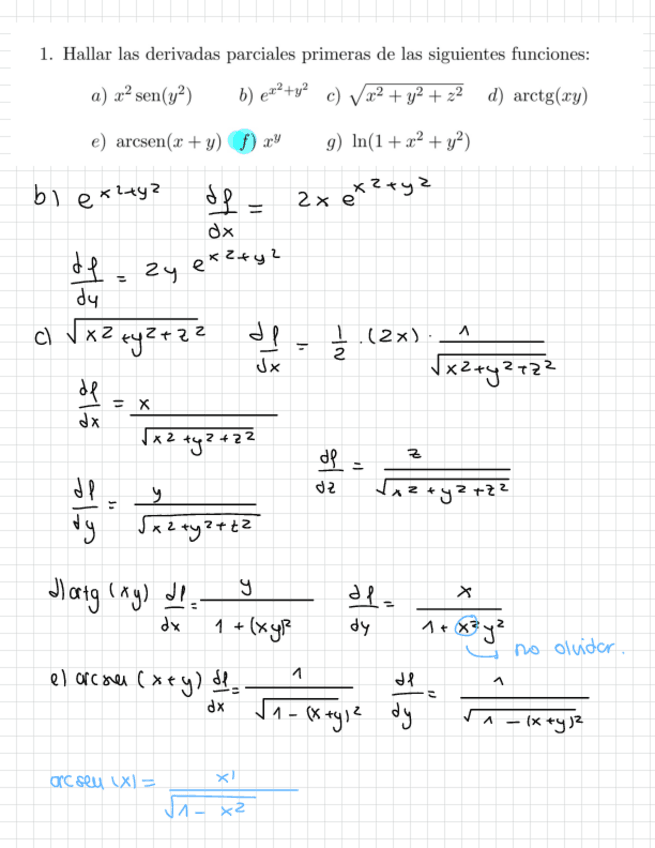 1. Hallar las derivadas parciales primeras de las siguientes funciones:
a) x² sen(y²) b) e^{x²+y²} c) √(x² + y² + z²) d) arctg(xy)
e) arcsen(x + y) f) x^y g) ln(1 + x² + y²)
b) e^{x²+y²} df/dx = 2x e^{x²+y²}
df/dy = 2y e^{x²+y²}
c) √(x²+y²+z²) df/dx = 1/2 · (2x) · 1/√(x²+y²+z²)
df/dx = x/√(x²+y²+z²)
df/dz = z/√(x²+y²+z²)
df/dy = y/√(x²+y²+z²)
d) artg (xy) df/dx = y/(1+(xy)²) df/dy = x/(1+x²y²)
no olvidar.
e) arcsen (x+y) df/dx = 1/√(1-(x+y)²) df/dy = 1/√(1-(x+y)²)
arcsen (x) = x'/√(1-x²)